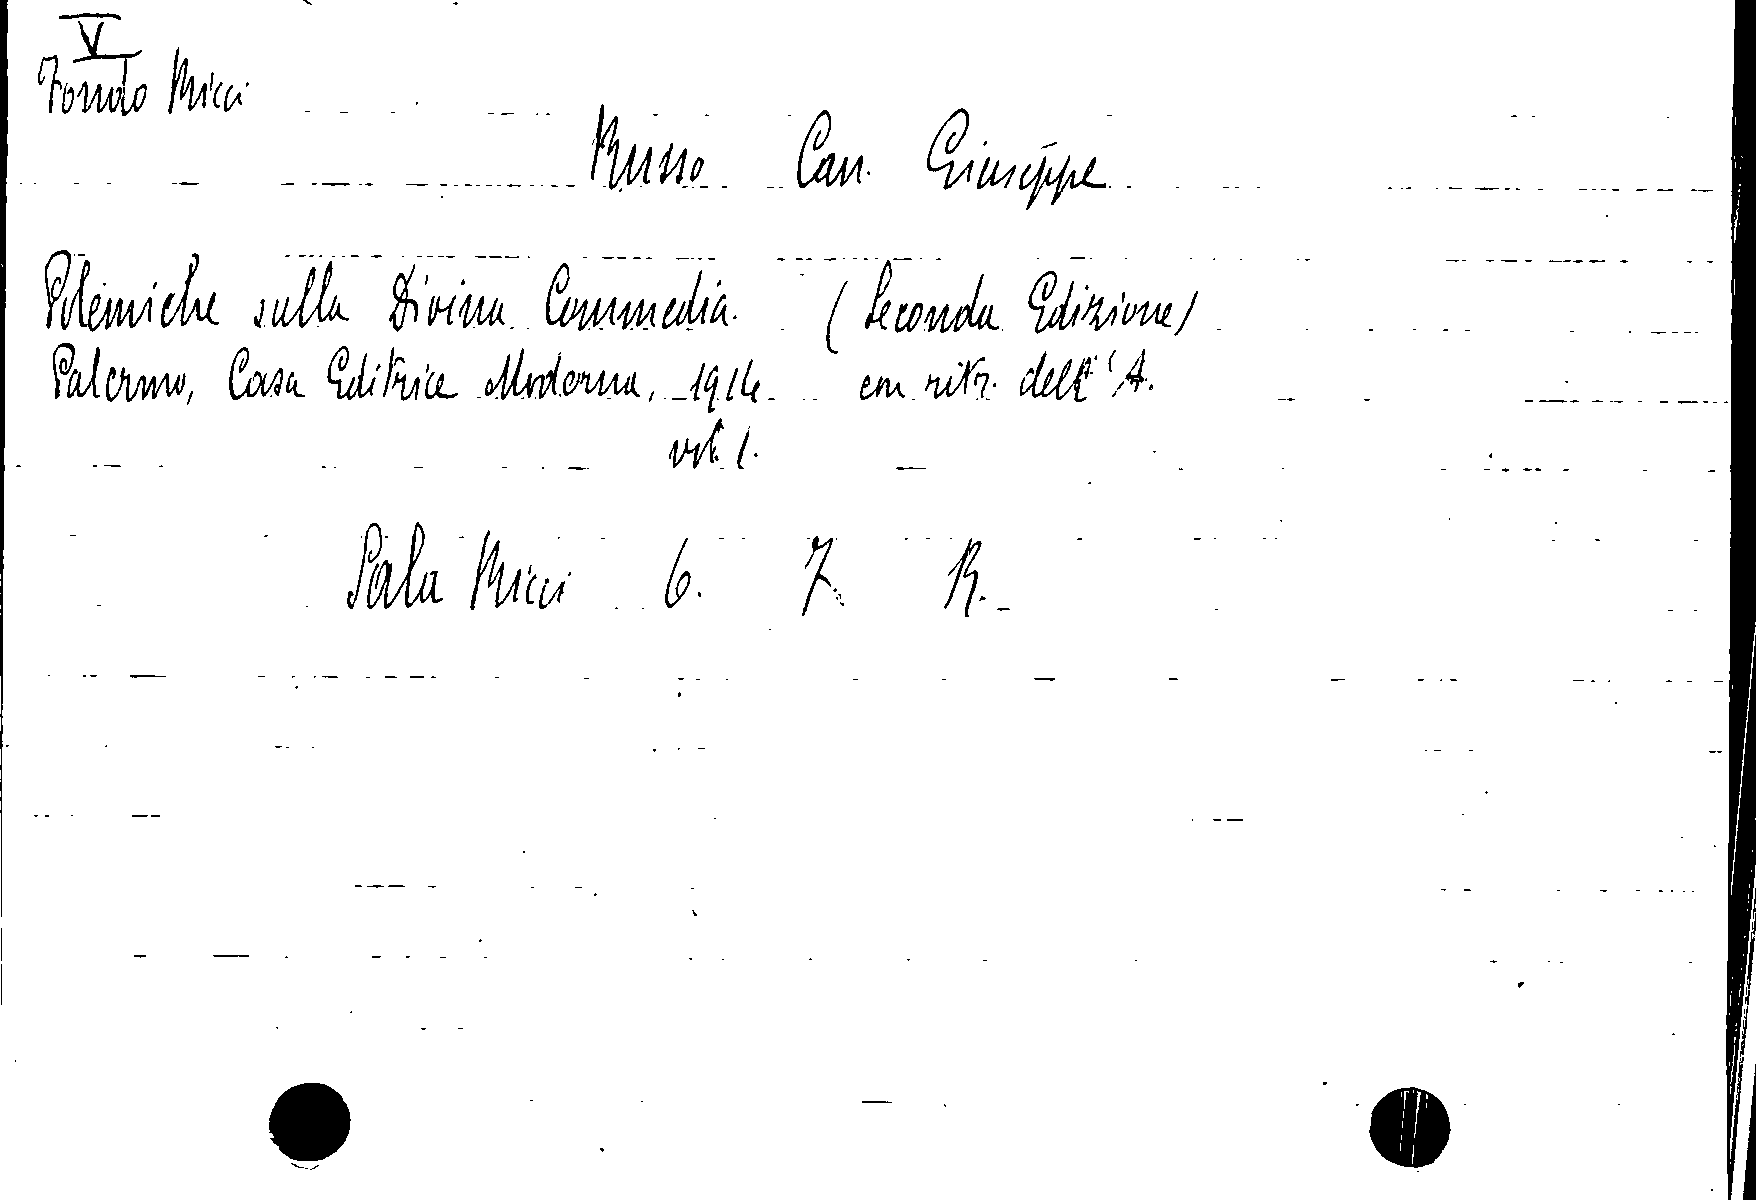 V
Fondo Ricci
Russo Can. Giuseppe
Polemiche sulla Divina Commedia. (Seconda Edizione)
Palermo, Casa Editrice Moderna, 1914 con ritr. dell'A.
vol. 1.
Sala Ricci 6. 7. R.